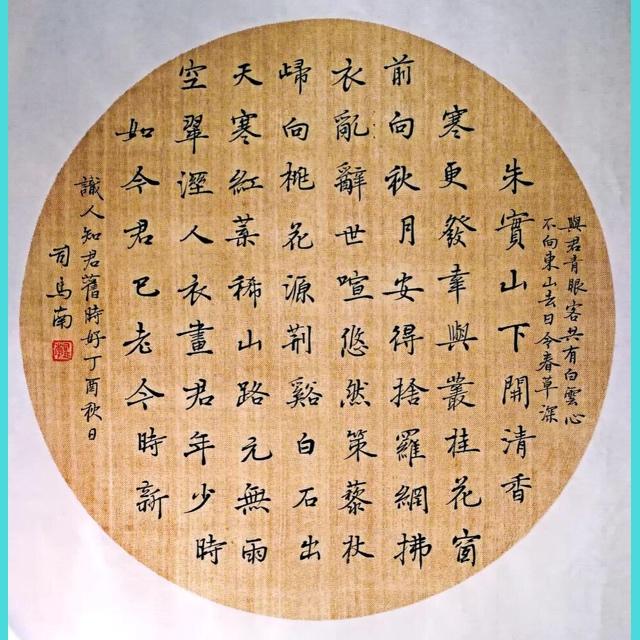 與君青眼客共有白雲心
不向東山去日令春草深
朱實山下開清香
寒更發幸與叢桂花窗
前向秋月安得捨羅網拂
衣亂辭世喧悠然策藜杖
歸向桃花源荆谿白石出
天寒紅葉稀山路元無雨
空翠溼人衣畫君年少時
如今君已老今時新
識人知君舊時好丁酉秋日
司馬南